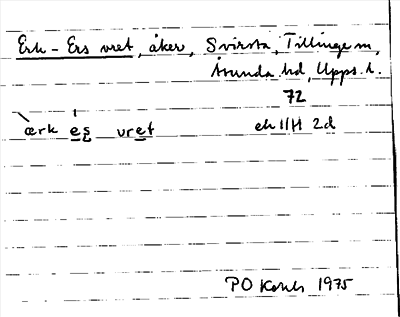 Erk-Ers vret, åker, Svirsta, Tillinge sn,
Åsunda hd, Upps. l.
72
ærk es vret ek 11H 2d
PO 1975